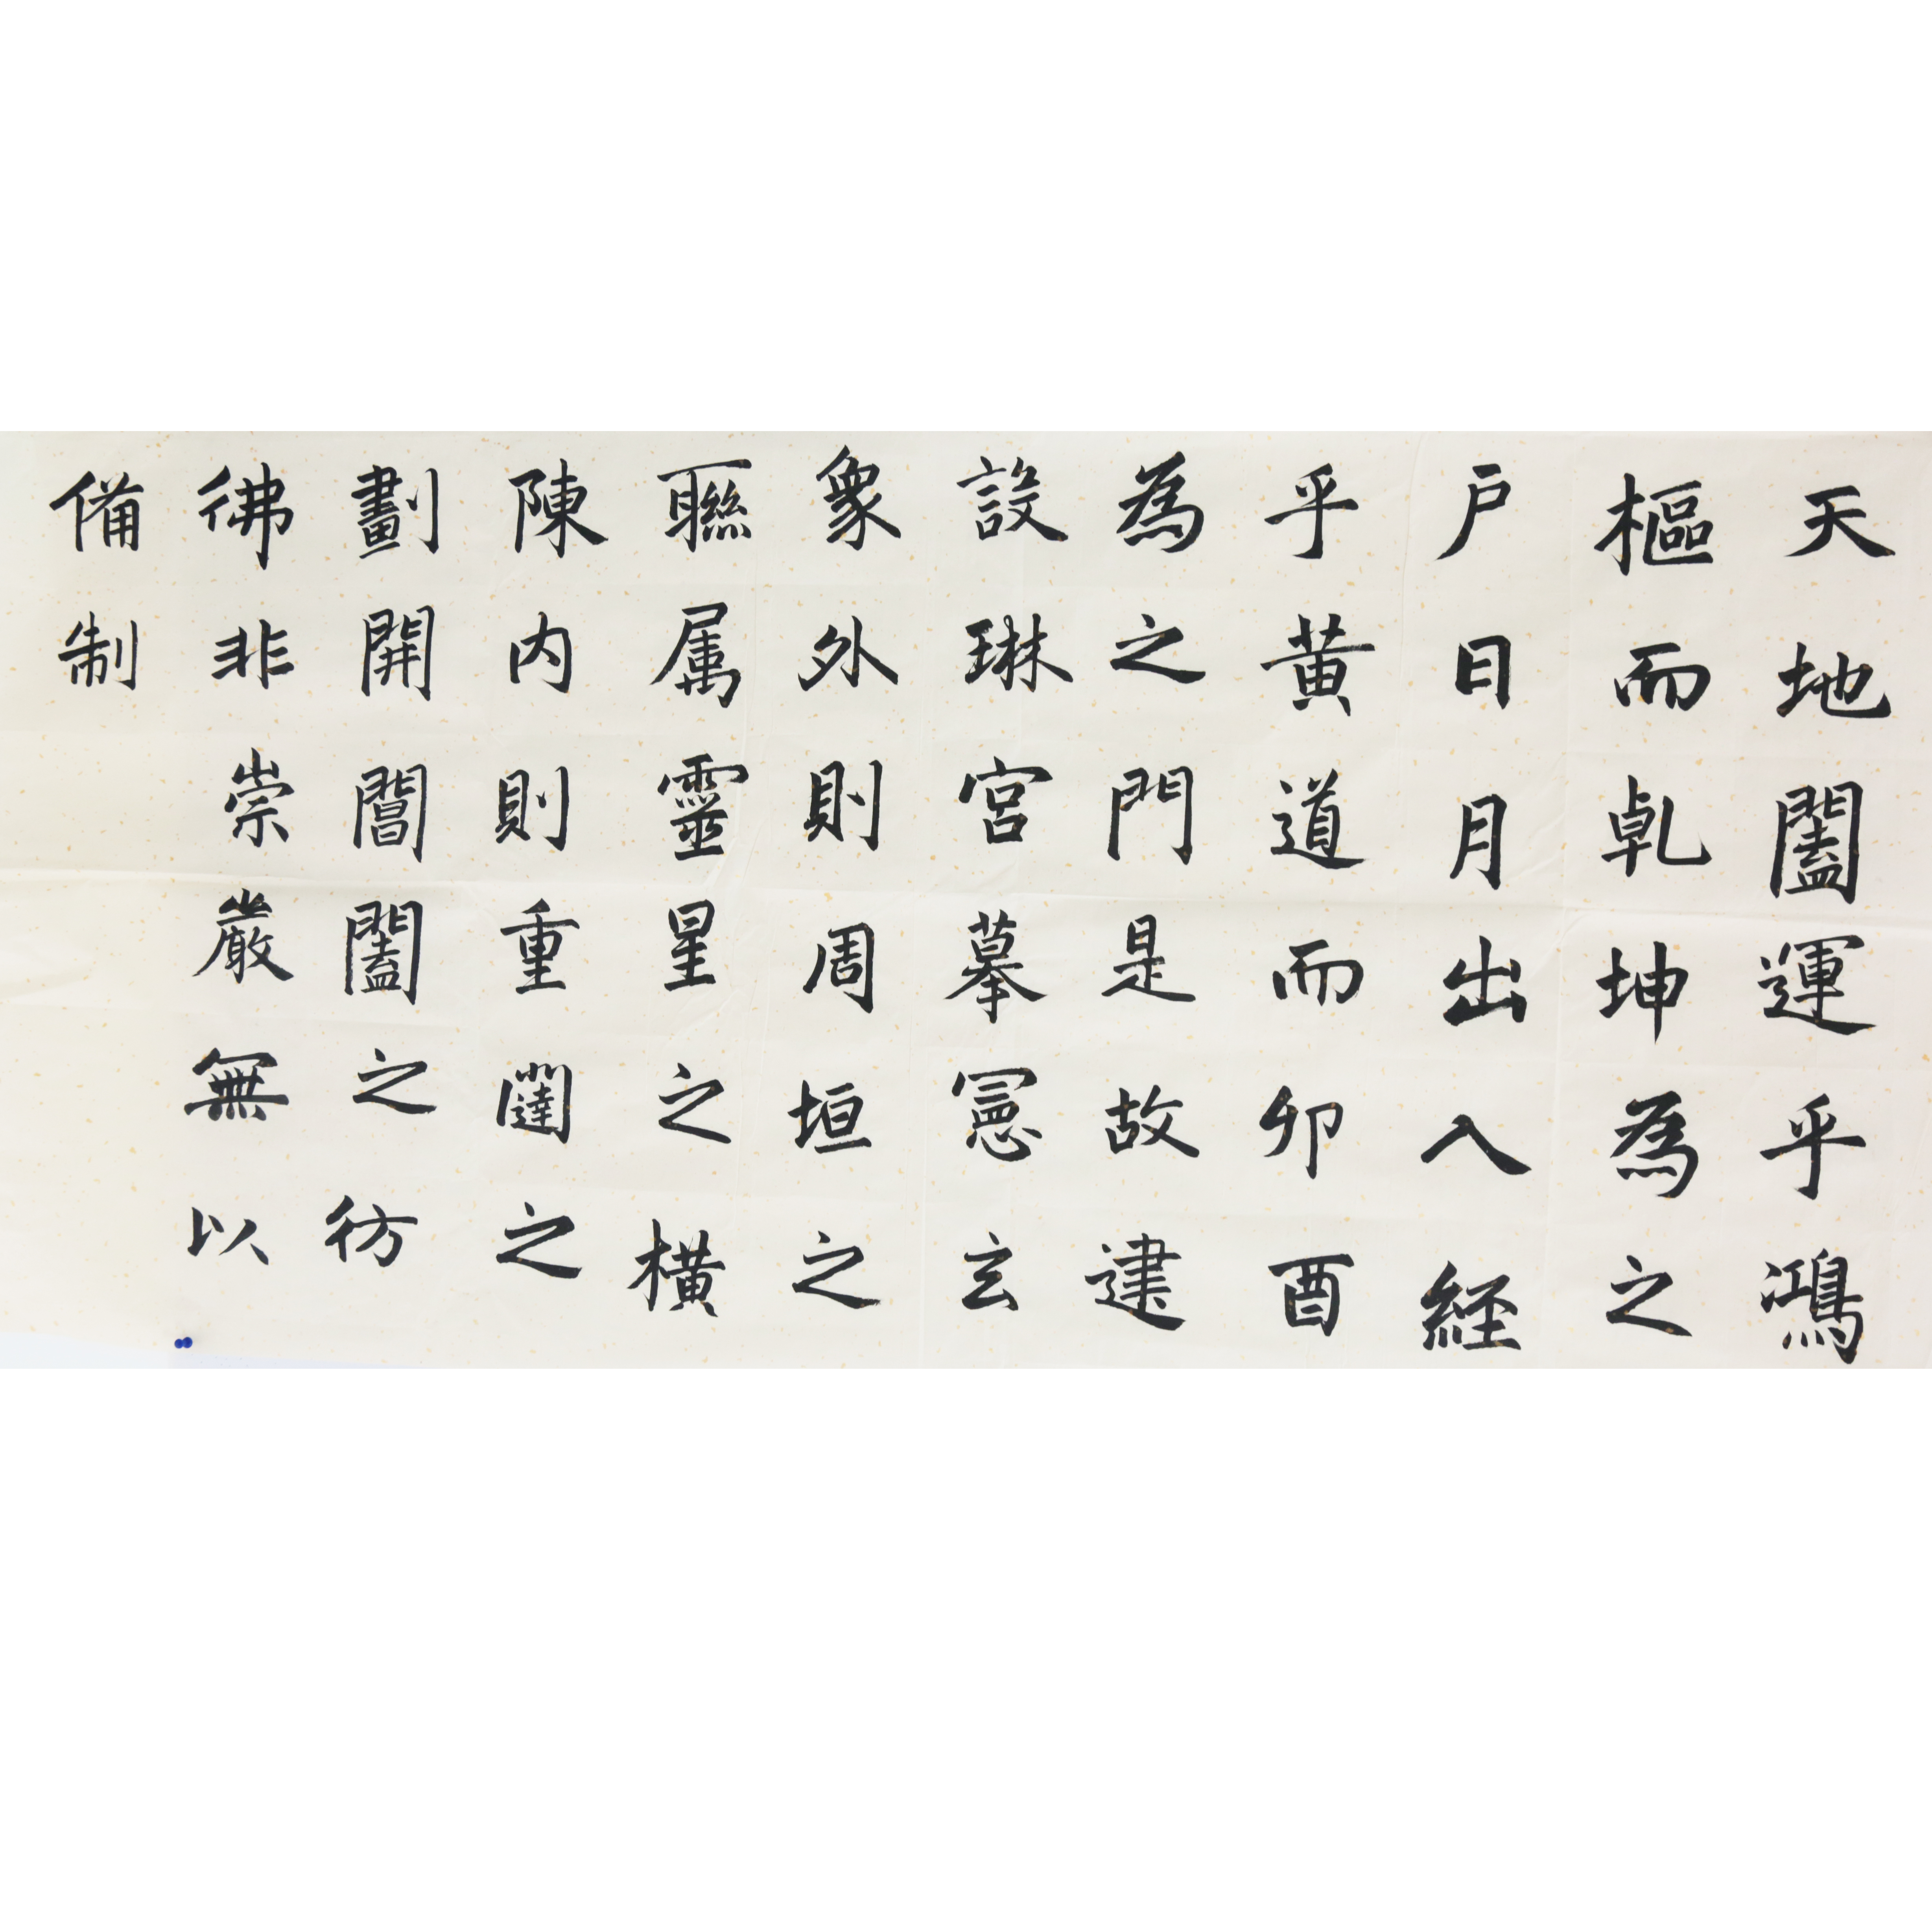 天地闔運乎鴻
樞而乹坤為之
户日月出入經
乎黄道而卯酉
為之門是故建
設琳宮摹憲玄
象外則周垣之
聯属靈星之横
陳内則重闥之
劃開閶闔之彷
彿非崇嚴無以
備制